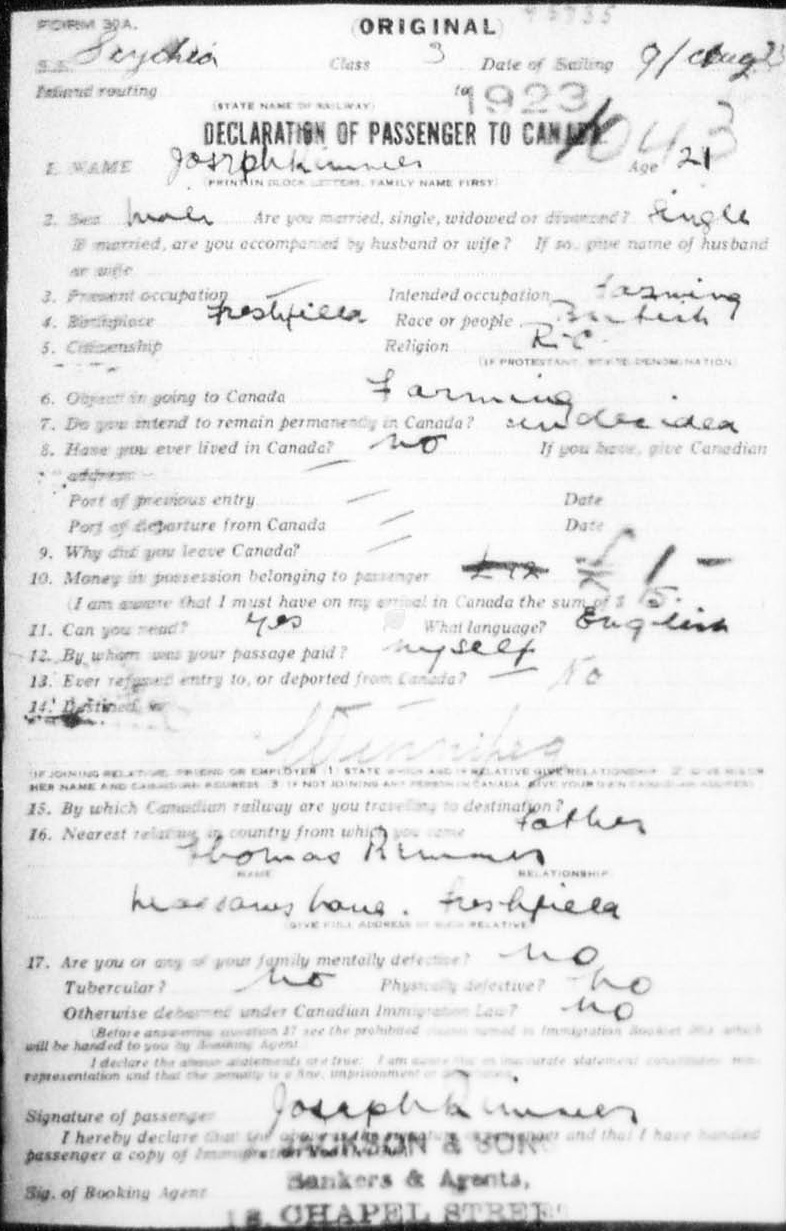 FORM 30A.
ORIGINAL
S.S. Scythia Class 3 Date of Sailing 9/Aug 23
Inland routing to
(STATE NAME OF RAILWAY) 1923
DECLARATION OF PASSENGER TO CANADA
1. NAME Joseph Rimmer Age 21
(PRINT IN BLOCK LETTERS, FAMILY NAME FIRST)
2. Sex male Are you married, single, widowed or divorced? Single
If married, are you accompanied by husband or wife? If so, give name of husband
or wife
3. Present occupation — Intended occupation Farming
4. Birthplace Freshfield Race or people British
5. Citizenship Religion R.C.
(IF PROTESTANT, STATE DENOMINATION)
6. Object in going to Canada Farming
7. Do you intend to remain permanently in Canada? undecided
8. Have you ever lived in Canada? no If you have, give Canadian
address —
Port of previous entry — Date
Port of departure from Canada — Date
9. Why did you leave Canada? —
10. Money in possession belonging to passenger £ 1 –
(I am aware that I must have on my arrival in Canada the sum of $ 15.
11. Can you read? yes What language? English
12. By whom was your passage paid? myself
13. Ever refused entry to, or deported from Canada? — No
14. Destined to
Winnipeg
15. By which Canadian railway are you travelling to destination?
16. Nearest relative in country from which you came father
Thomas Rimmer
NAME RELATIONSHIP
Lane. Freshfield
(GIVE FULL ADDRESS OF SUCH RELATIVE)
17. Are you or any of your family mentally defective? no
Tubercular? no Physically defective? no
Otherwise debarred under Canadian Immigration Law? no
(Before answering question 17 see the prohibited classes named in Immigration Booklet which
will be handed to you by Booking Agent
I declare the above statements are true. I am aware that an inaccurate statement constitutes mis-
representation and that the penalty is a fine, imprisonment or
Signature of passenger Joseph Rimmer
I hereby declare that and that I have handed
passenger a copy of JACKSON & SON
Bankers & Agents,
Sig. of Booking Agent
CHAPEL STREET